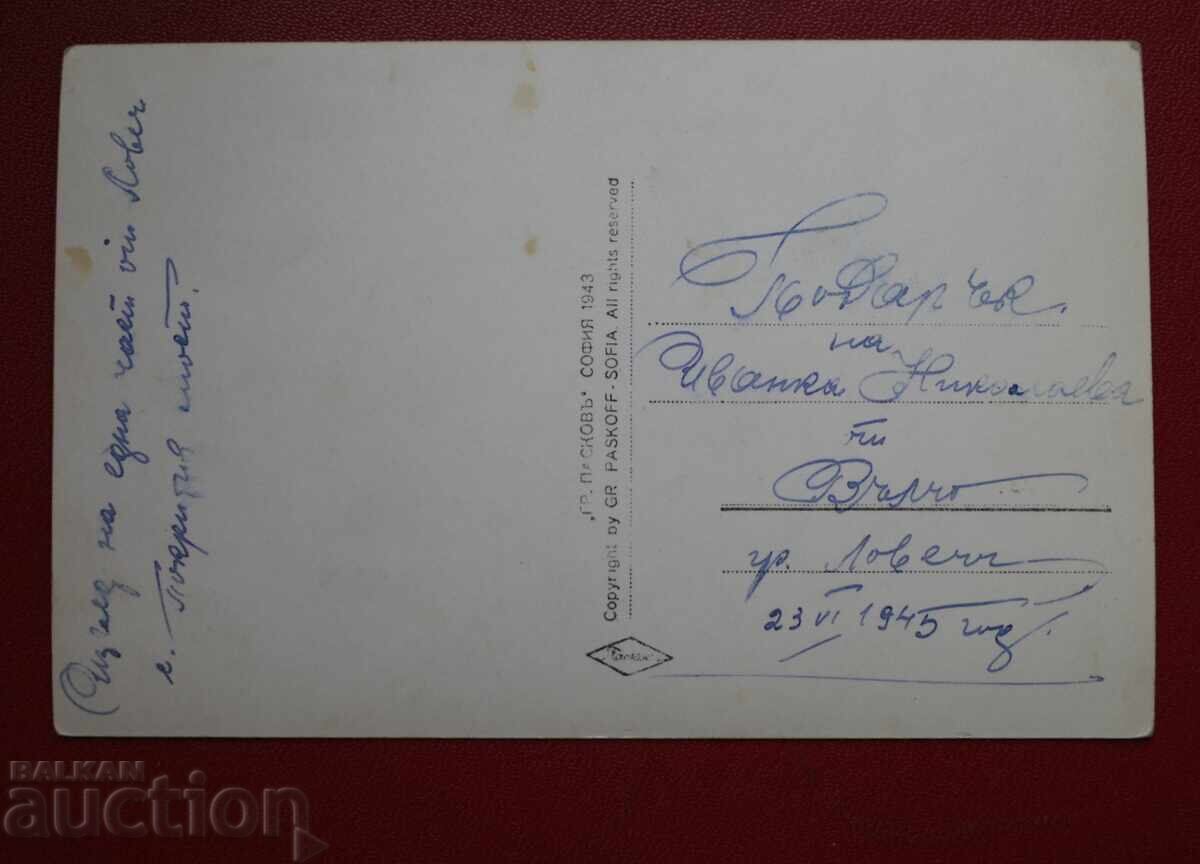 Изглед на една част от Ловеч
с. Покрития мост.
„ГР. ПАСКОВЪ“ СОФИЯ 1943
Copyright by GR PASKOFF - SOFIA. All rights reserved
Подарък
на
Иванка Николаева
от
Вълчо
гр. Ловечъ
23 VI 1945 год.
BALKAN
auction